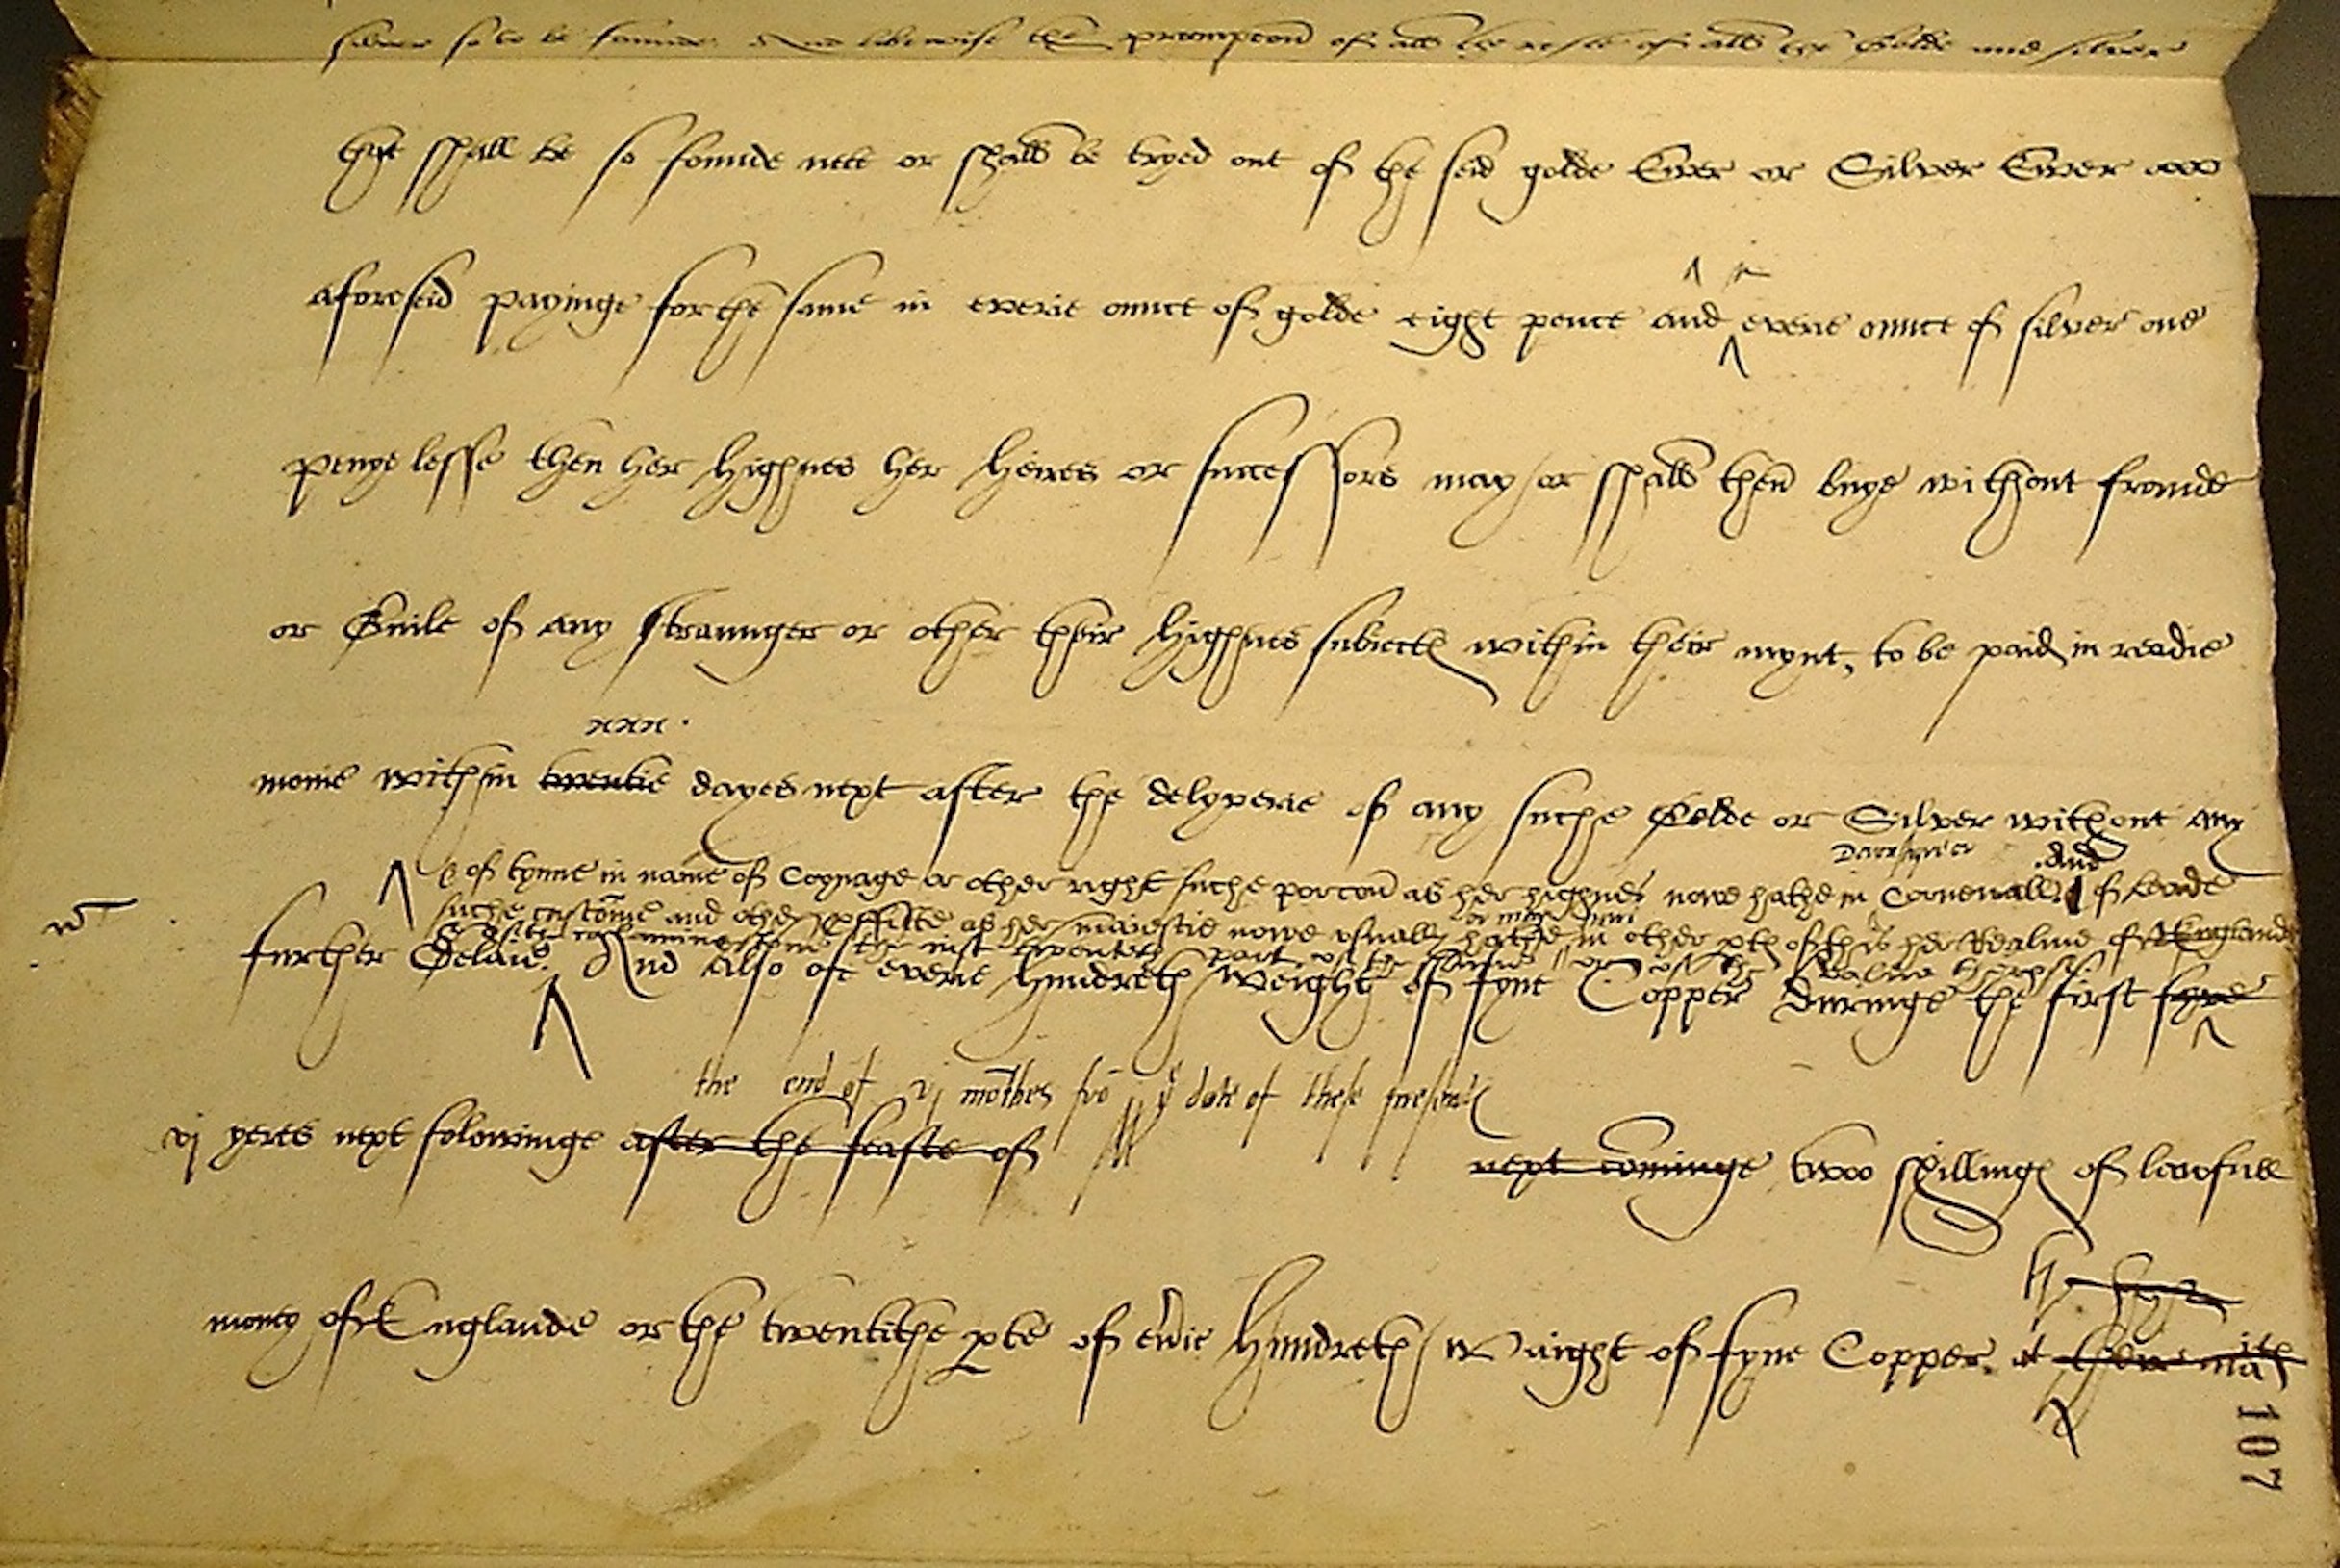 silver so to be founde And likewise the preempcon of all the reste of all the Golde and silver
that shall be so founde nett or shall be tryed out of the seid golde Ewer or Silver Ewer
aforeseid payinge for the same in everie ounce of golde eight pence and everie ounce of silver one
in
penye lesse then her highnes her heires or successors may or shall then buye without fraude
or Guile of any straunger or other their highnes subiectes within their mynt, to be paid in readie
xxx.
monie within twentie dayes next after the delyverie of any suche Golde or Silver without any
Devonshier or
of tynne in name of Coynage or other right suche porcon as her highnes nowe hathe in Cornewall and of leade
suche custome and other proffitte as her maiestie nowe usually hathe in other ptes of this her Realme of England
or may have
further Delaie. And also of everie hundreth weight of fyne Copper duringe the first fyve
the end of vj mothes fro ye date of these presentes
vj yeres next folowinge after the feaste of next cominge two shillinges of lawfull
money of Englande or the twentithe pte of everie hundreth weight of fyne Copper. at their
107